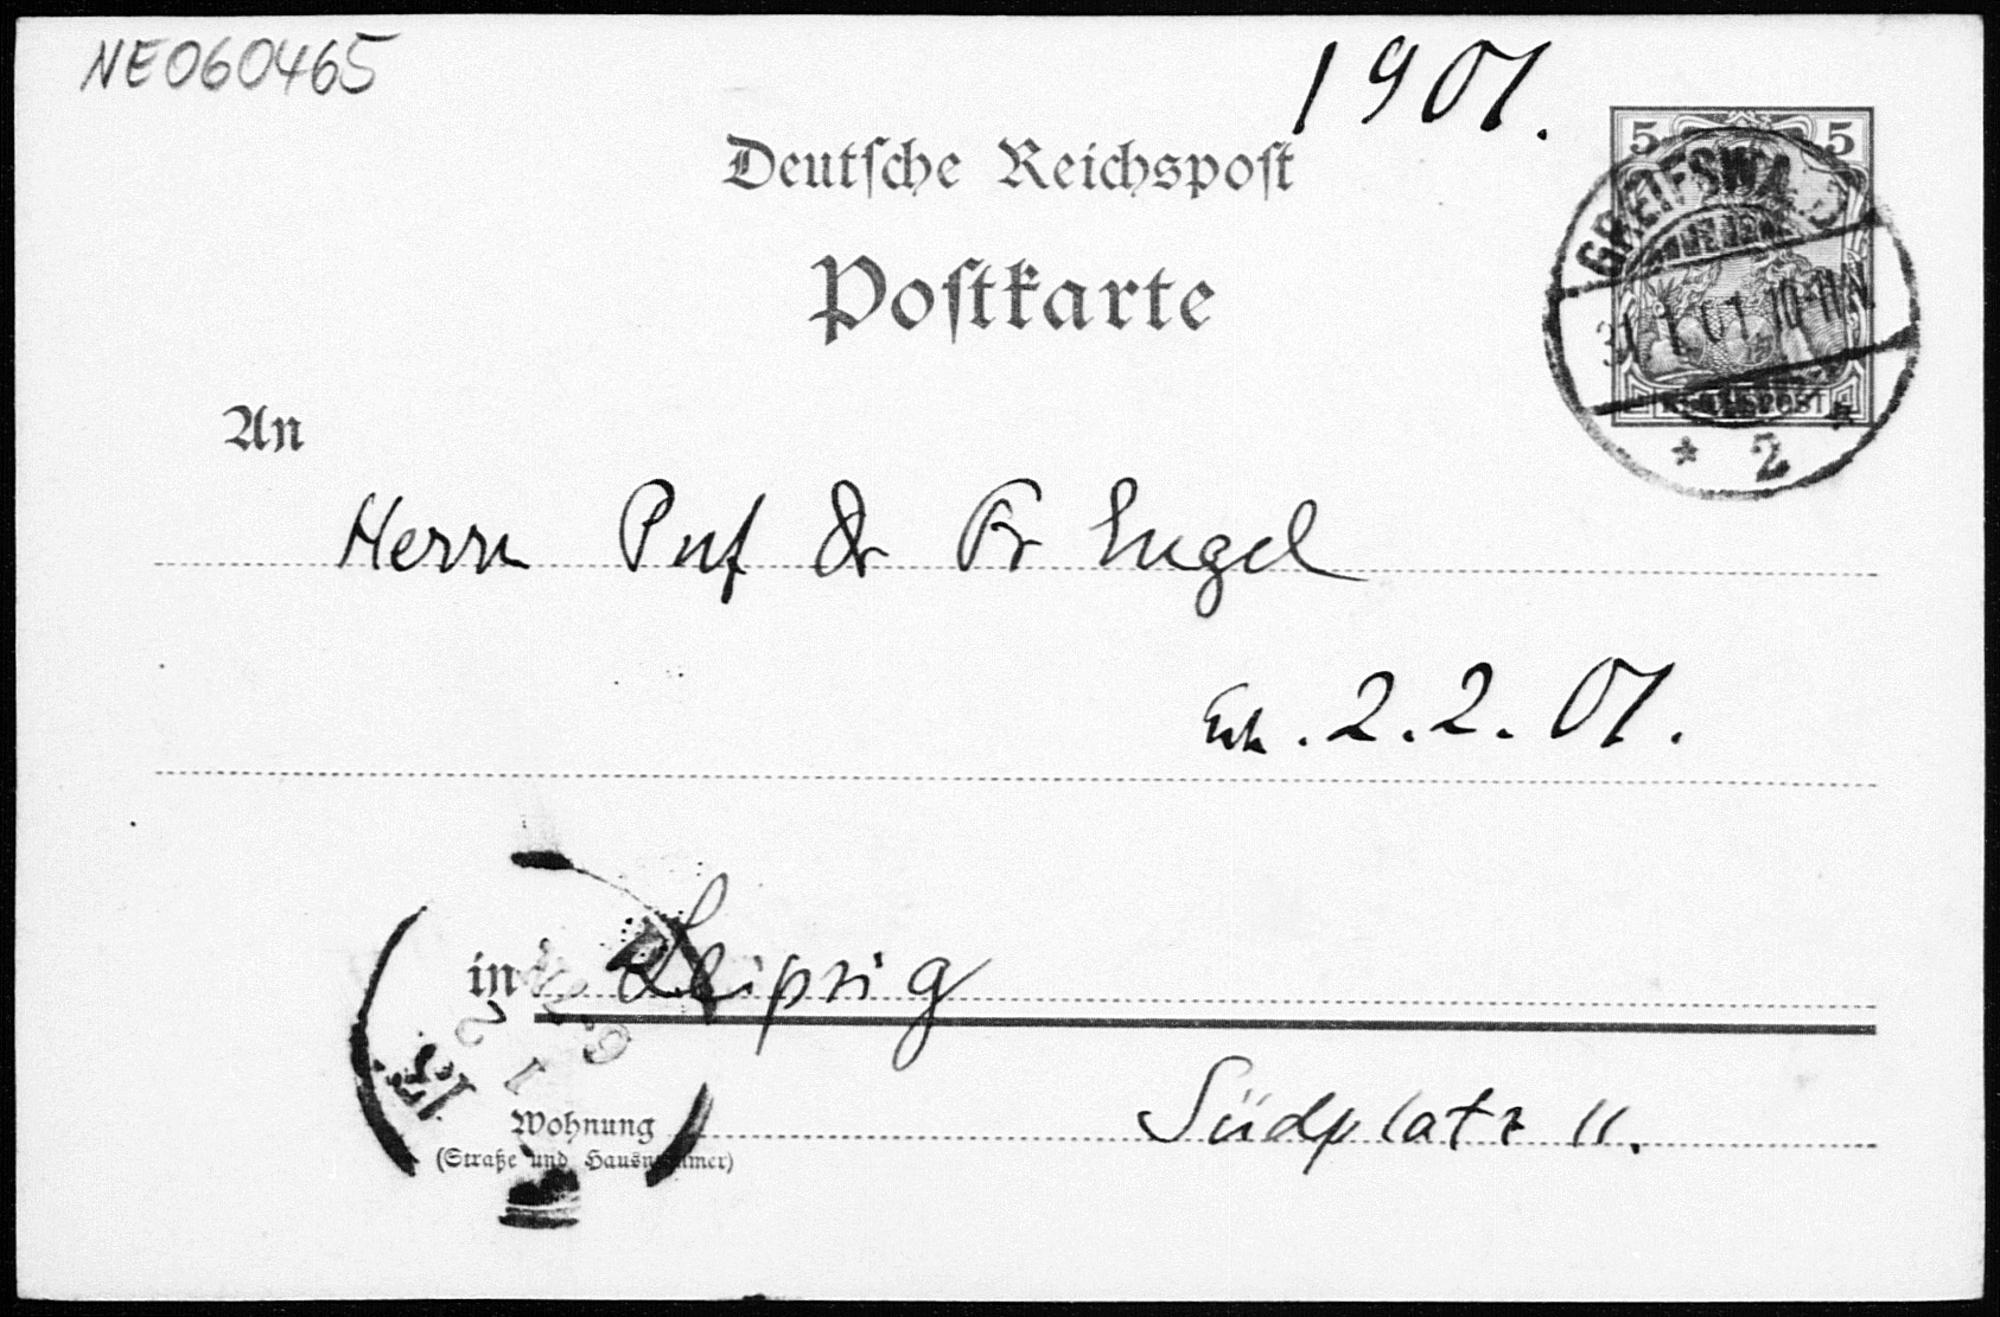 NE060465
1901.
Deutsche Reichspost
Postkarte
5 5
GREIFSWALD
31.1.01. 10-11N
REICHSPOST
* 2 *
An
Herrn Prof Dr Fr Engel
Erh. 2.2.01.
in Leipzig
Südplatz 11.
Wohnung
(Straße und Hausnummer)